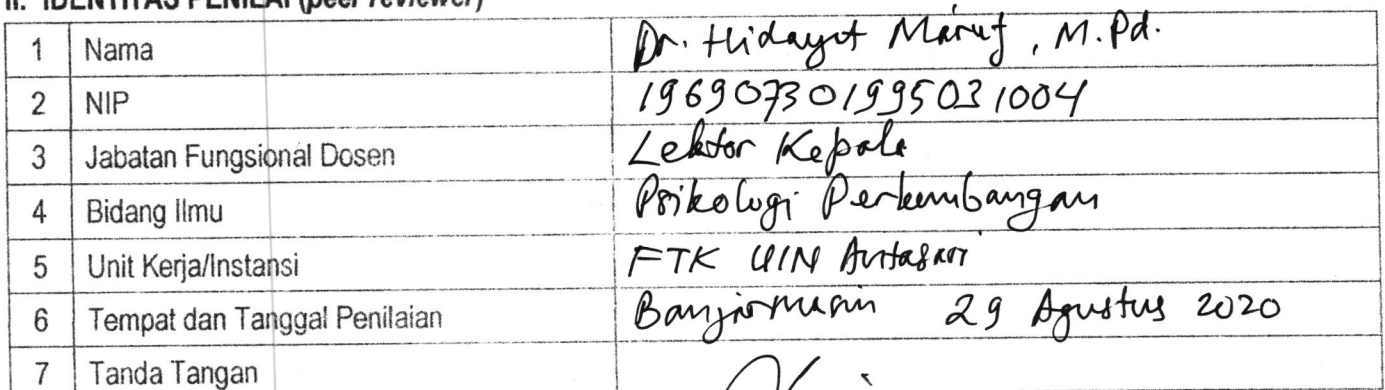 II. IDENTITAS PENILAI (peer reviewer)
1 Nama Dr. Hidayat Maruf, M.Pd.
2 NIP 196907301995031004
3 Jabatan Fungsional Dosen Lektor Kepala
4 Bidang Ilmu Psikologi Perkembangan
5 Unit Kerja/Instansi FTK UIN Antasari
6 Tempat dan Tanggal Penilaian Banjarmasin 29 Agustus 2020
7 Tanda Tangan